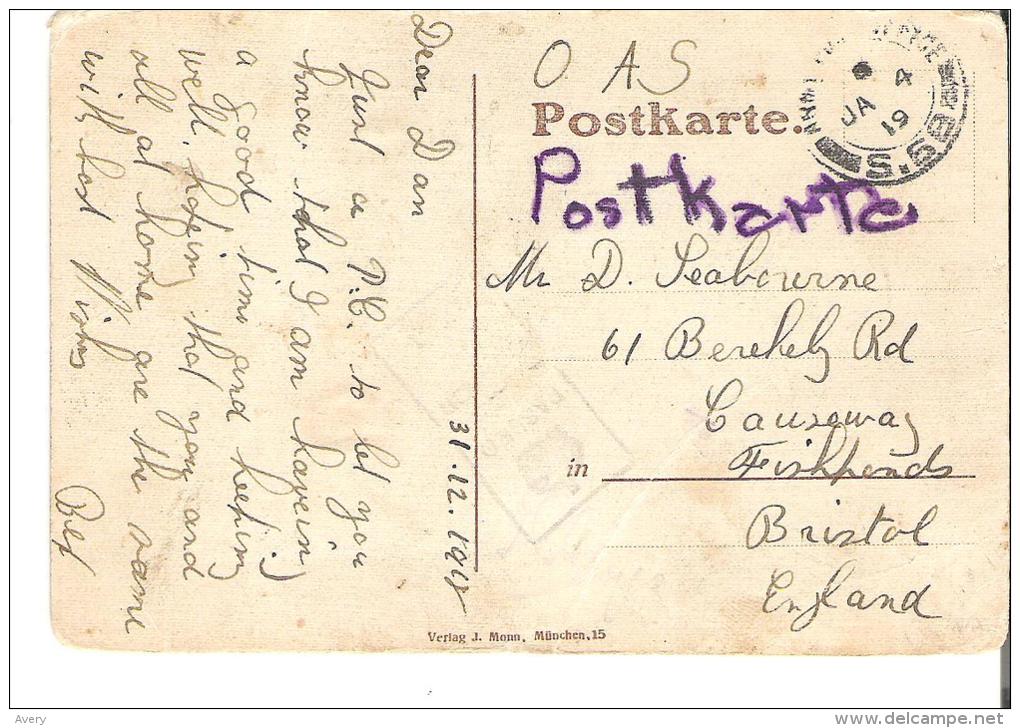 O A S
Postkarte.
Postkarte
JA 4
19
S.S
Mr D. Seabourne
61 Berkely Rd
Causeway
Fishponds
in
Bristol
England
31.12.1918
Dear Dan
Just a P.C. to let you
know that I am havein
a Good time and keeping
well. hopein that you and
all at home are the same
with best Wishes
Verlag J. Monn, München, 15
Avery
delcampe.net